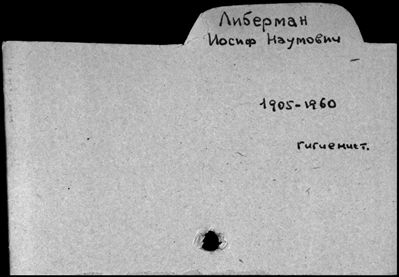 Либерман
Иосиф Наумович
1905-1960
гигиенист.